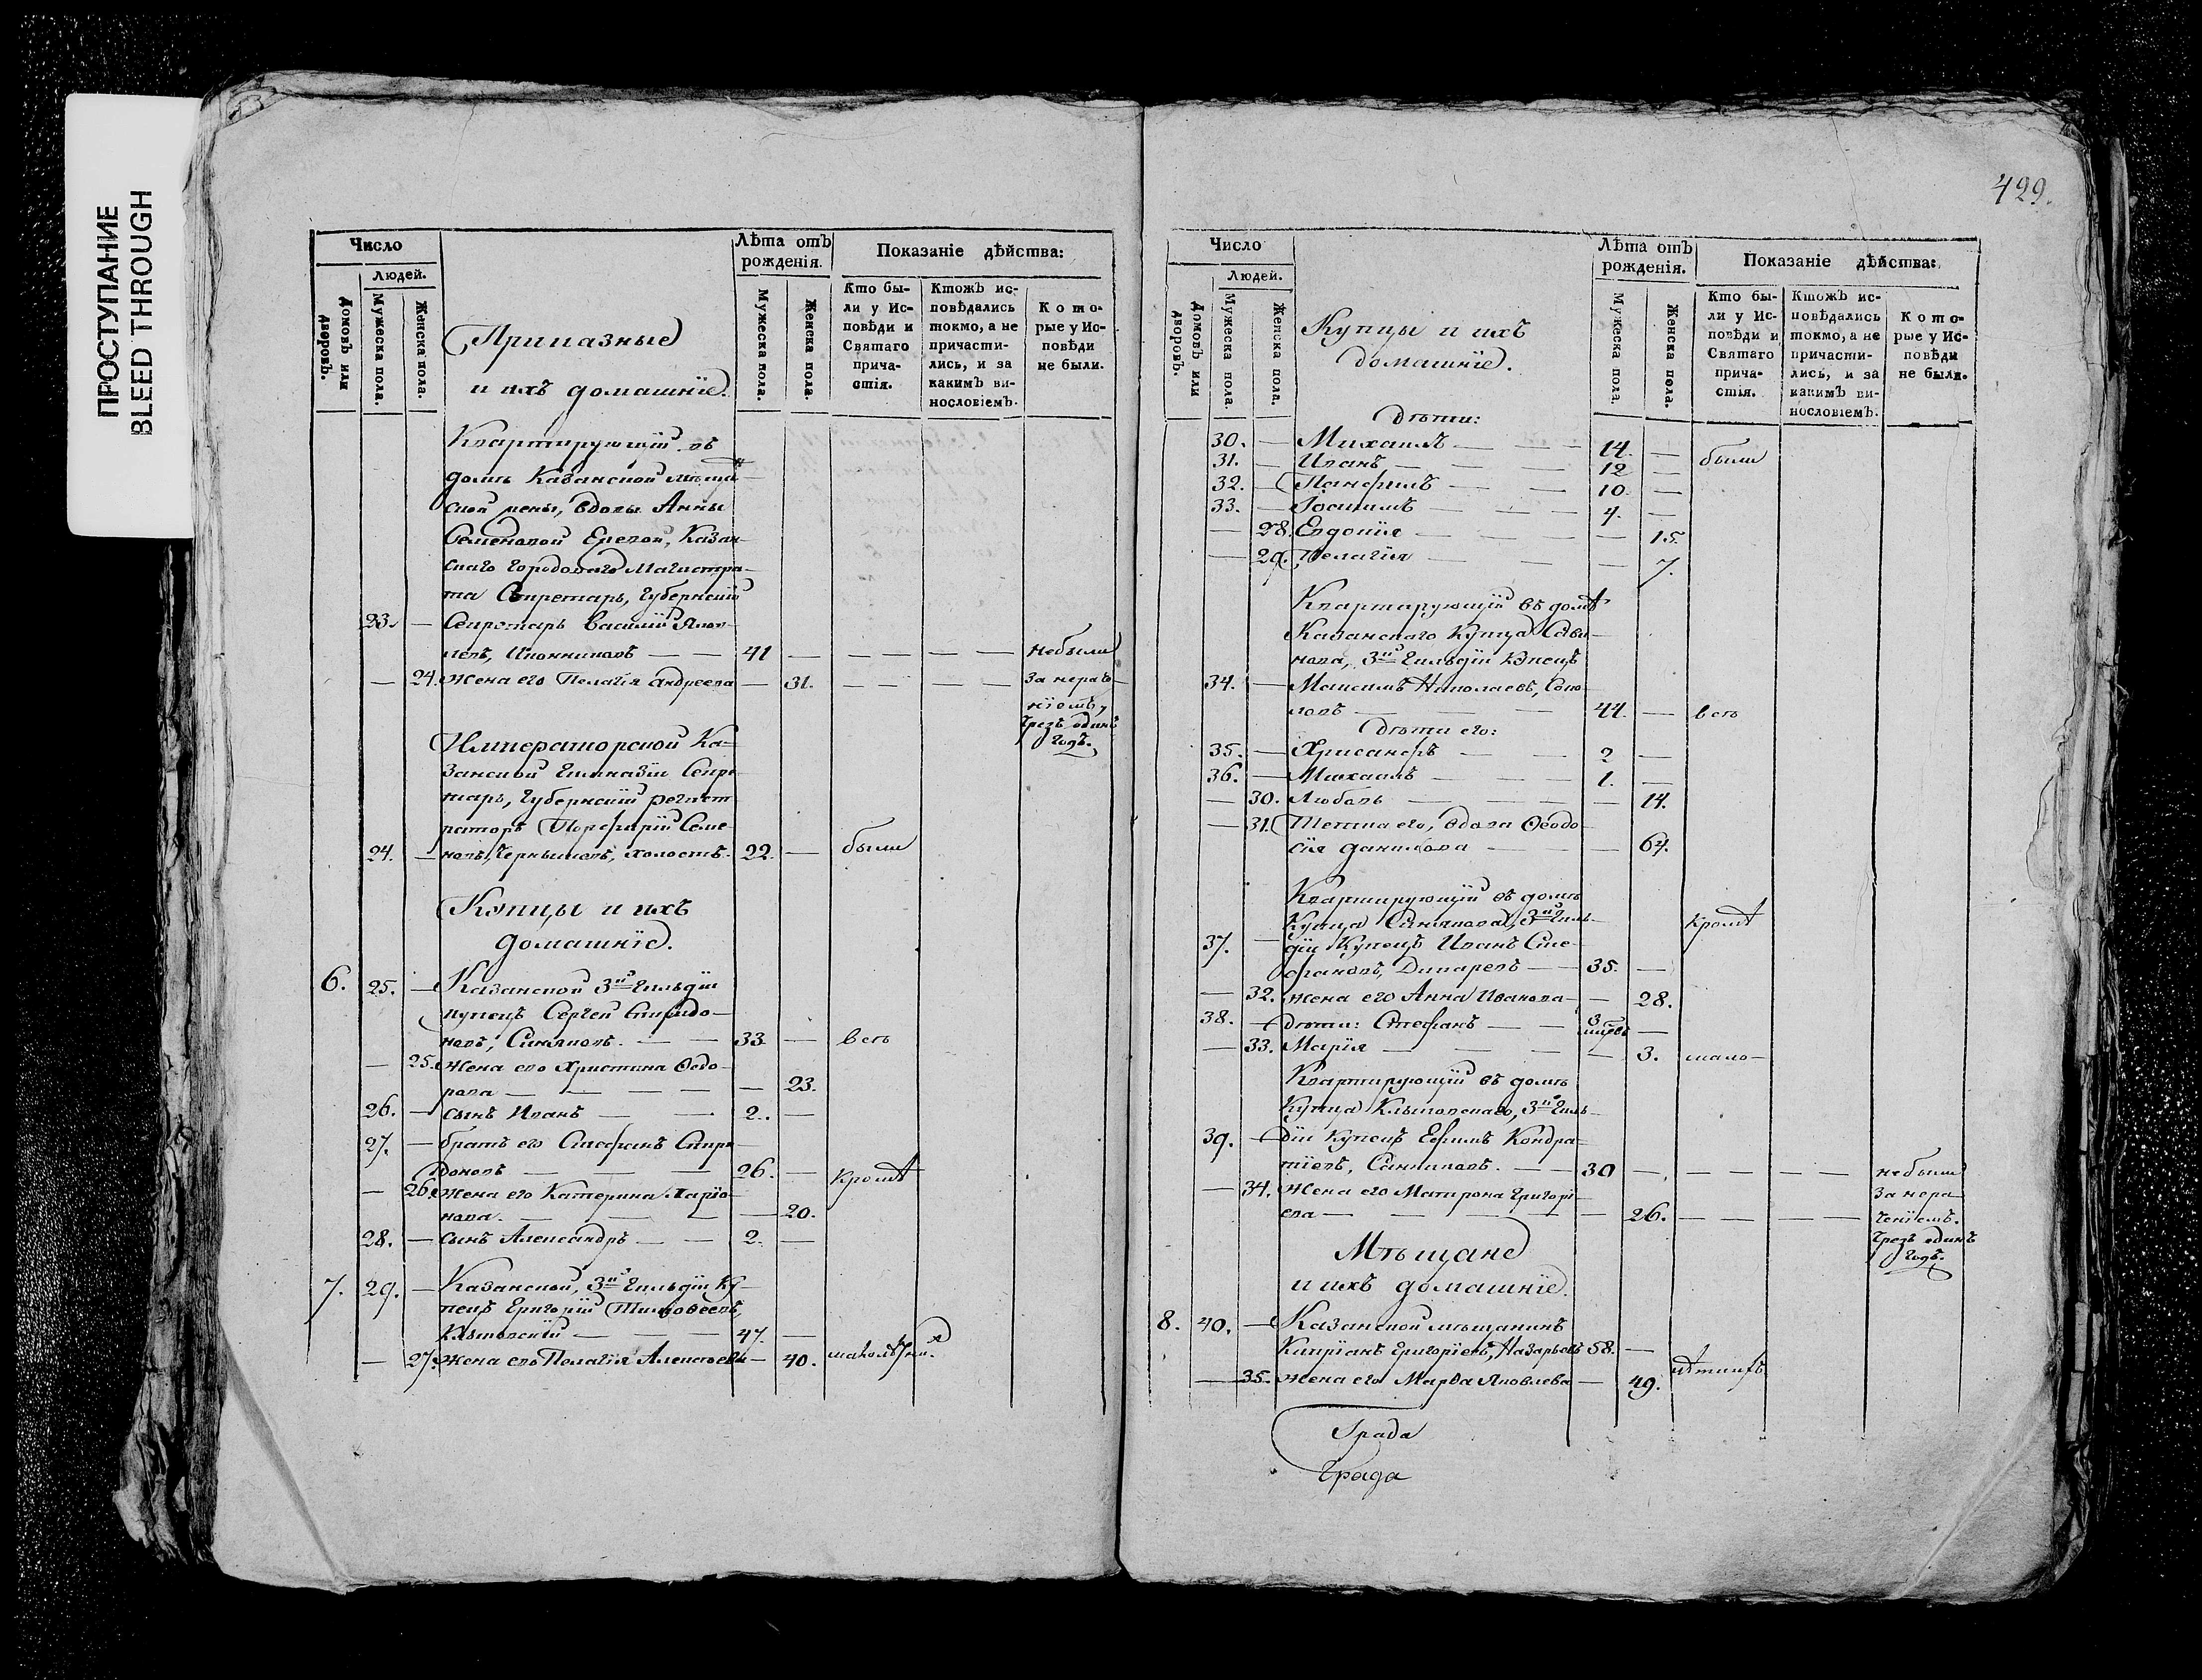 ПРОСТУПАНИЕ
BLEED THROUGH
Число
Людей.
Домовъ или дворовъ.
Мужеска пола.
Женска пола.
Приказные
и ихъ домашніе.
Лѣта отъ рожденія.
Мужеска пола.
Женска пола.
Показаніе дѣйства:
Кто были у Исповѣди и Святаго причастія.
Ктожъ исповѣдались токмо, а не причастились, и за какимъ винословіемъ.
Которые у Исповѣди не были.
Квартирующій въ
домѣ Казанской мѣща
ской жены, вдовы Анны
Семеновой Казан
скаго Городоваго Магистра-
та Секретарь, Губернскій
23. — Секретарь Василій Яков-
левъ, Иконниковъ — — 41 — — — — — небыли
— 24. Жена его Пелагія Андреева — 31. — — — — за нераче
ніемъ,
Чрезъ одинъ
годъ.
Императорской Ка-
занской Гимназіи Секре
тарь, Губернскій регист
раторъ Порфирій Семе-
24. — новъ, Чернышевъ, холостъ. 22. — были
Купцы и ихъ
домашніе.
6. 25. — Казанской 3й Гильдіи
купецъ Сергей Спиридо-
новъ, Синяковъ. — — 33. — всѣ
— 25. Жена его Христина Ѳедо-
рова — — — — 23.
26. — сынъ Иванъ — — 2. —
27. — братъ его Стефанъ Спири-
доновъ — — — 26. — Кромѣ
— 26. Жена его Катерина Харіто-
нова. — — — — 20.
28. — сынъ Александръ — — 2. —
7. 29. — Казанской, 3й Гильдіи Ку-
пецъ Григорій Тимофеевъ,
Климовскій — — — 47. —
— 27. Жена его Пелагія Алексѣева — 40.
429.
Число
Людей.
Домовъ или дворовъ.
Мужеска пола.
Женска пола.
Купцы и ихъ
домашніе.
Лѣта отъ рожденія.
Мужеска пола.
Женска пола.
Показаніе дѣйства:
Кто были у Исповѣди и Святаго причастія.
Ктожъ исповѣдались токмо, а не причастились, и за какимъ винословіемъ.
Которые у Исповѣди не были.
дѣти:
30. — Михаилъ — — — 14. — были
31. — Иванъ — — — 12 —
32. — Памфилъ — — 10. —
33. — Іоакимъ — — — 4. —
— 28. Евдокія — — — — 15.
— 29. Пелагія — — — — 7.
Квартирующій въ домѣ
Казанскаго Купца Сави-
нова, 3й Гильдіи Купецъ
34. — Максимъ Николаевъ, Соко-
ловъ — — — 44. — всѣ
дѣти его:
35. — Хрисанфъ — — 2 —
36. — Михаилъ — — — 1. —
— 30. Любовь — — — — 14.
— 31. Теща его, вдова Ѳеодо-
сія Данилова — — — 64.
Квартирующій въ домѣ
Купца Синякова, 3й Гиль-
37. — діи Купецъ Иванъ Сте-
фановъ, Дикаревъ — — 35. —
Кромѣ
— 32. жена его Анна Иванова — — 28.
38. — дѣти: Стефанъ — — 3 —
— 33. Марія — — — — 3. мало-
Квартирующій въ домѣ
Купца Климовскаго, 3й Гиль-
39. — діи Купецъ Ефимъ Кондра-
тіевъ, Санниковъ. — — 30 — — — — — небыли
— 34. Жена его Матрона Григорі-
ева — — — — — 26. — — — —
за нера
ченіемъ.
Чрезъ одинъ
годъ.
Мѣщане
и ихъ домашніе.
8. 40. — Казанской мѣщанинъ
Кипріанъ Григоріевъ, Назарьевъ 58. —
— 35. жена его Марѳа Яковлева — 49.
лѣтнихъ
Града
Града